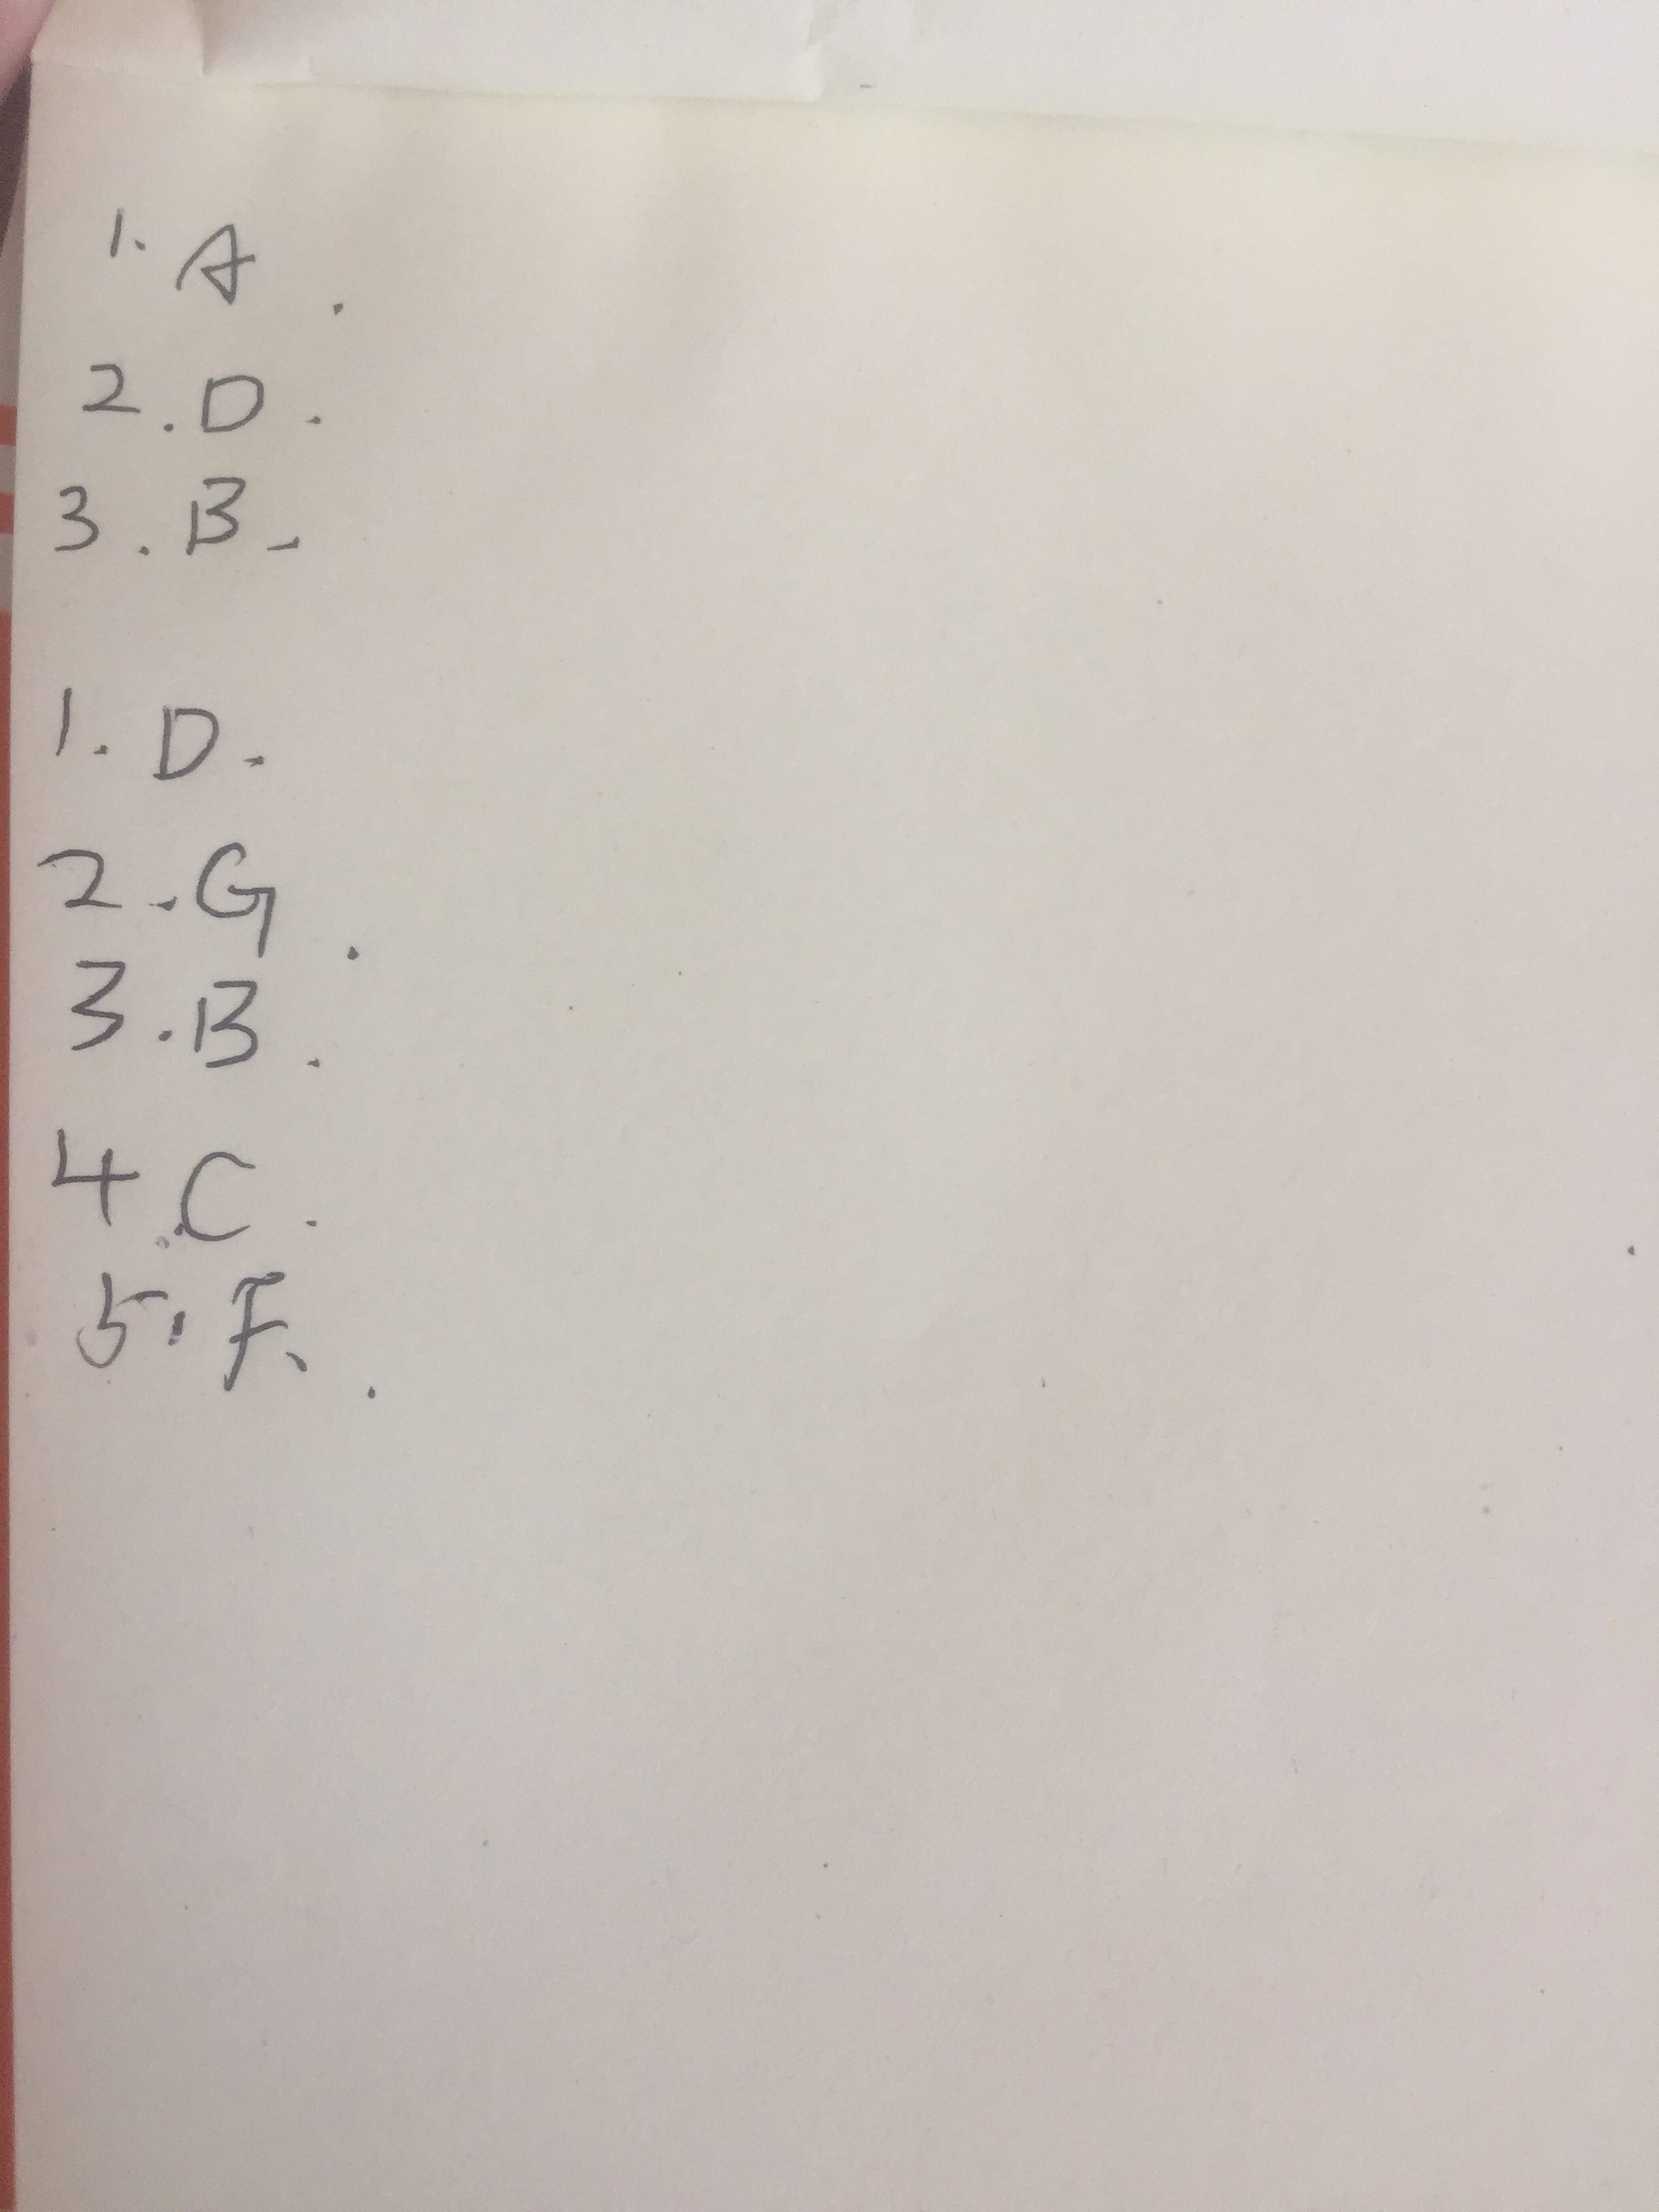 1. A.
2. D.
3. B.
1. D.
2. G.
3. B.
4. C.
5. F.